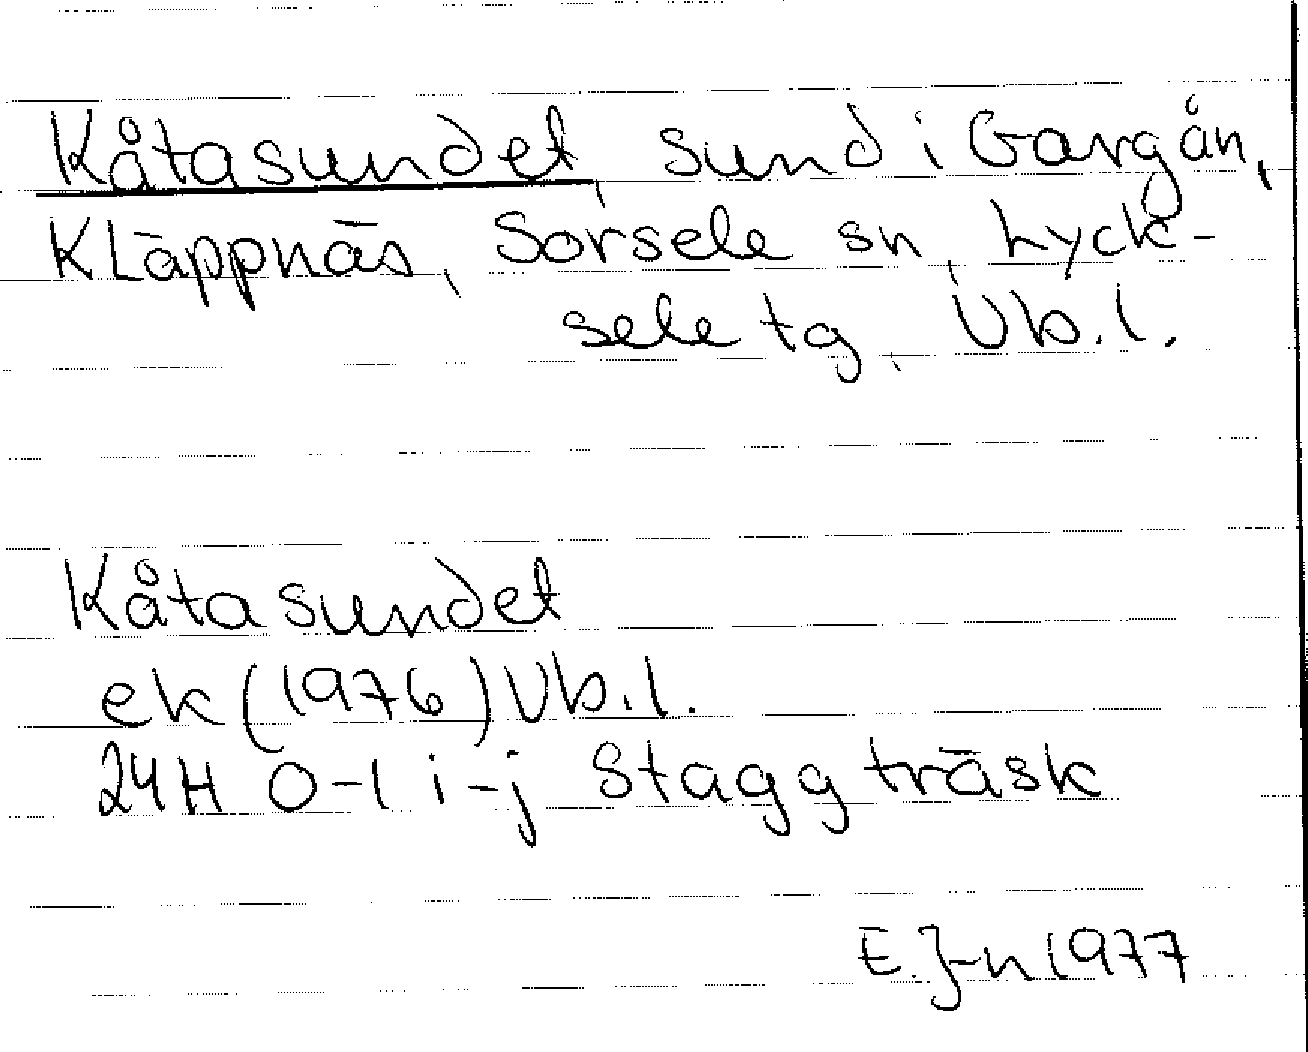 Kåtasundet, sund i Gargån,
Kläppnäs, Sorsele sn, Lyck-
sele tg, Vb.l.
Kåtasundet
ek (1976) Vb.l.
24H 0-1 i-j Staggträsk
E.J-n 1977